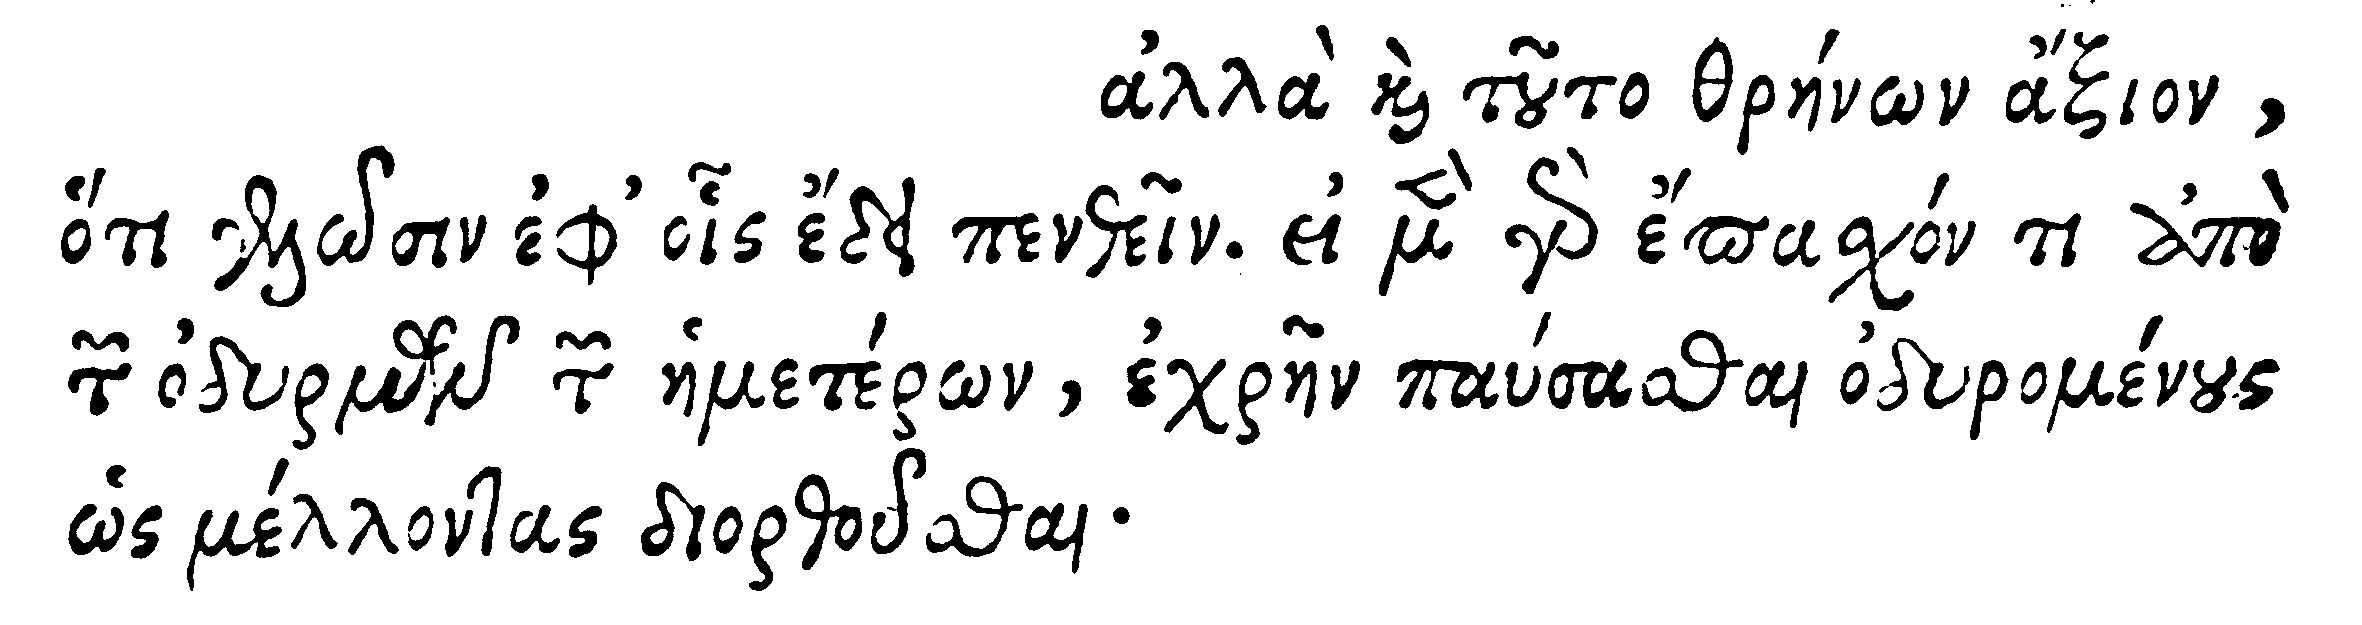 ἀλλὰ καὶ τοῦτο θρήνων ἄξιον,
ὅτι γελῶσιν ἐφ’ οἷς ἔδει πενθεῖν. εἰ μὲν γὰρ ἔπασχόν τι ἀπὸ
τῶν ὀδυρμῶν τῶν ἡμετέρων, ἐχρῆν παύσασθαι ὀδυρομένους
ὡς μέλλοντας διορθοῦσθαι·